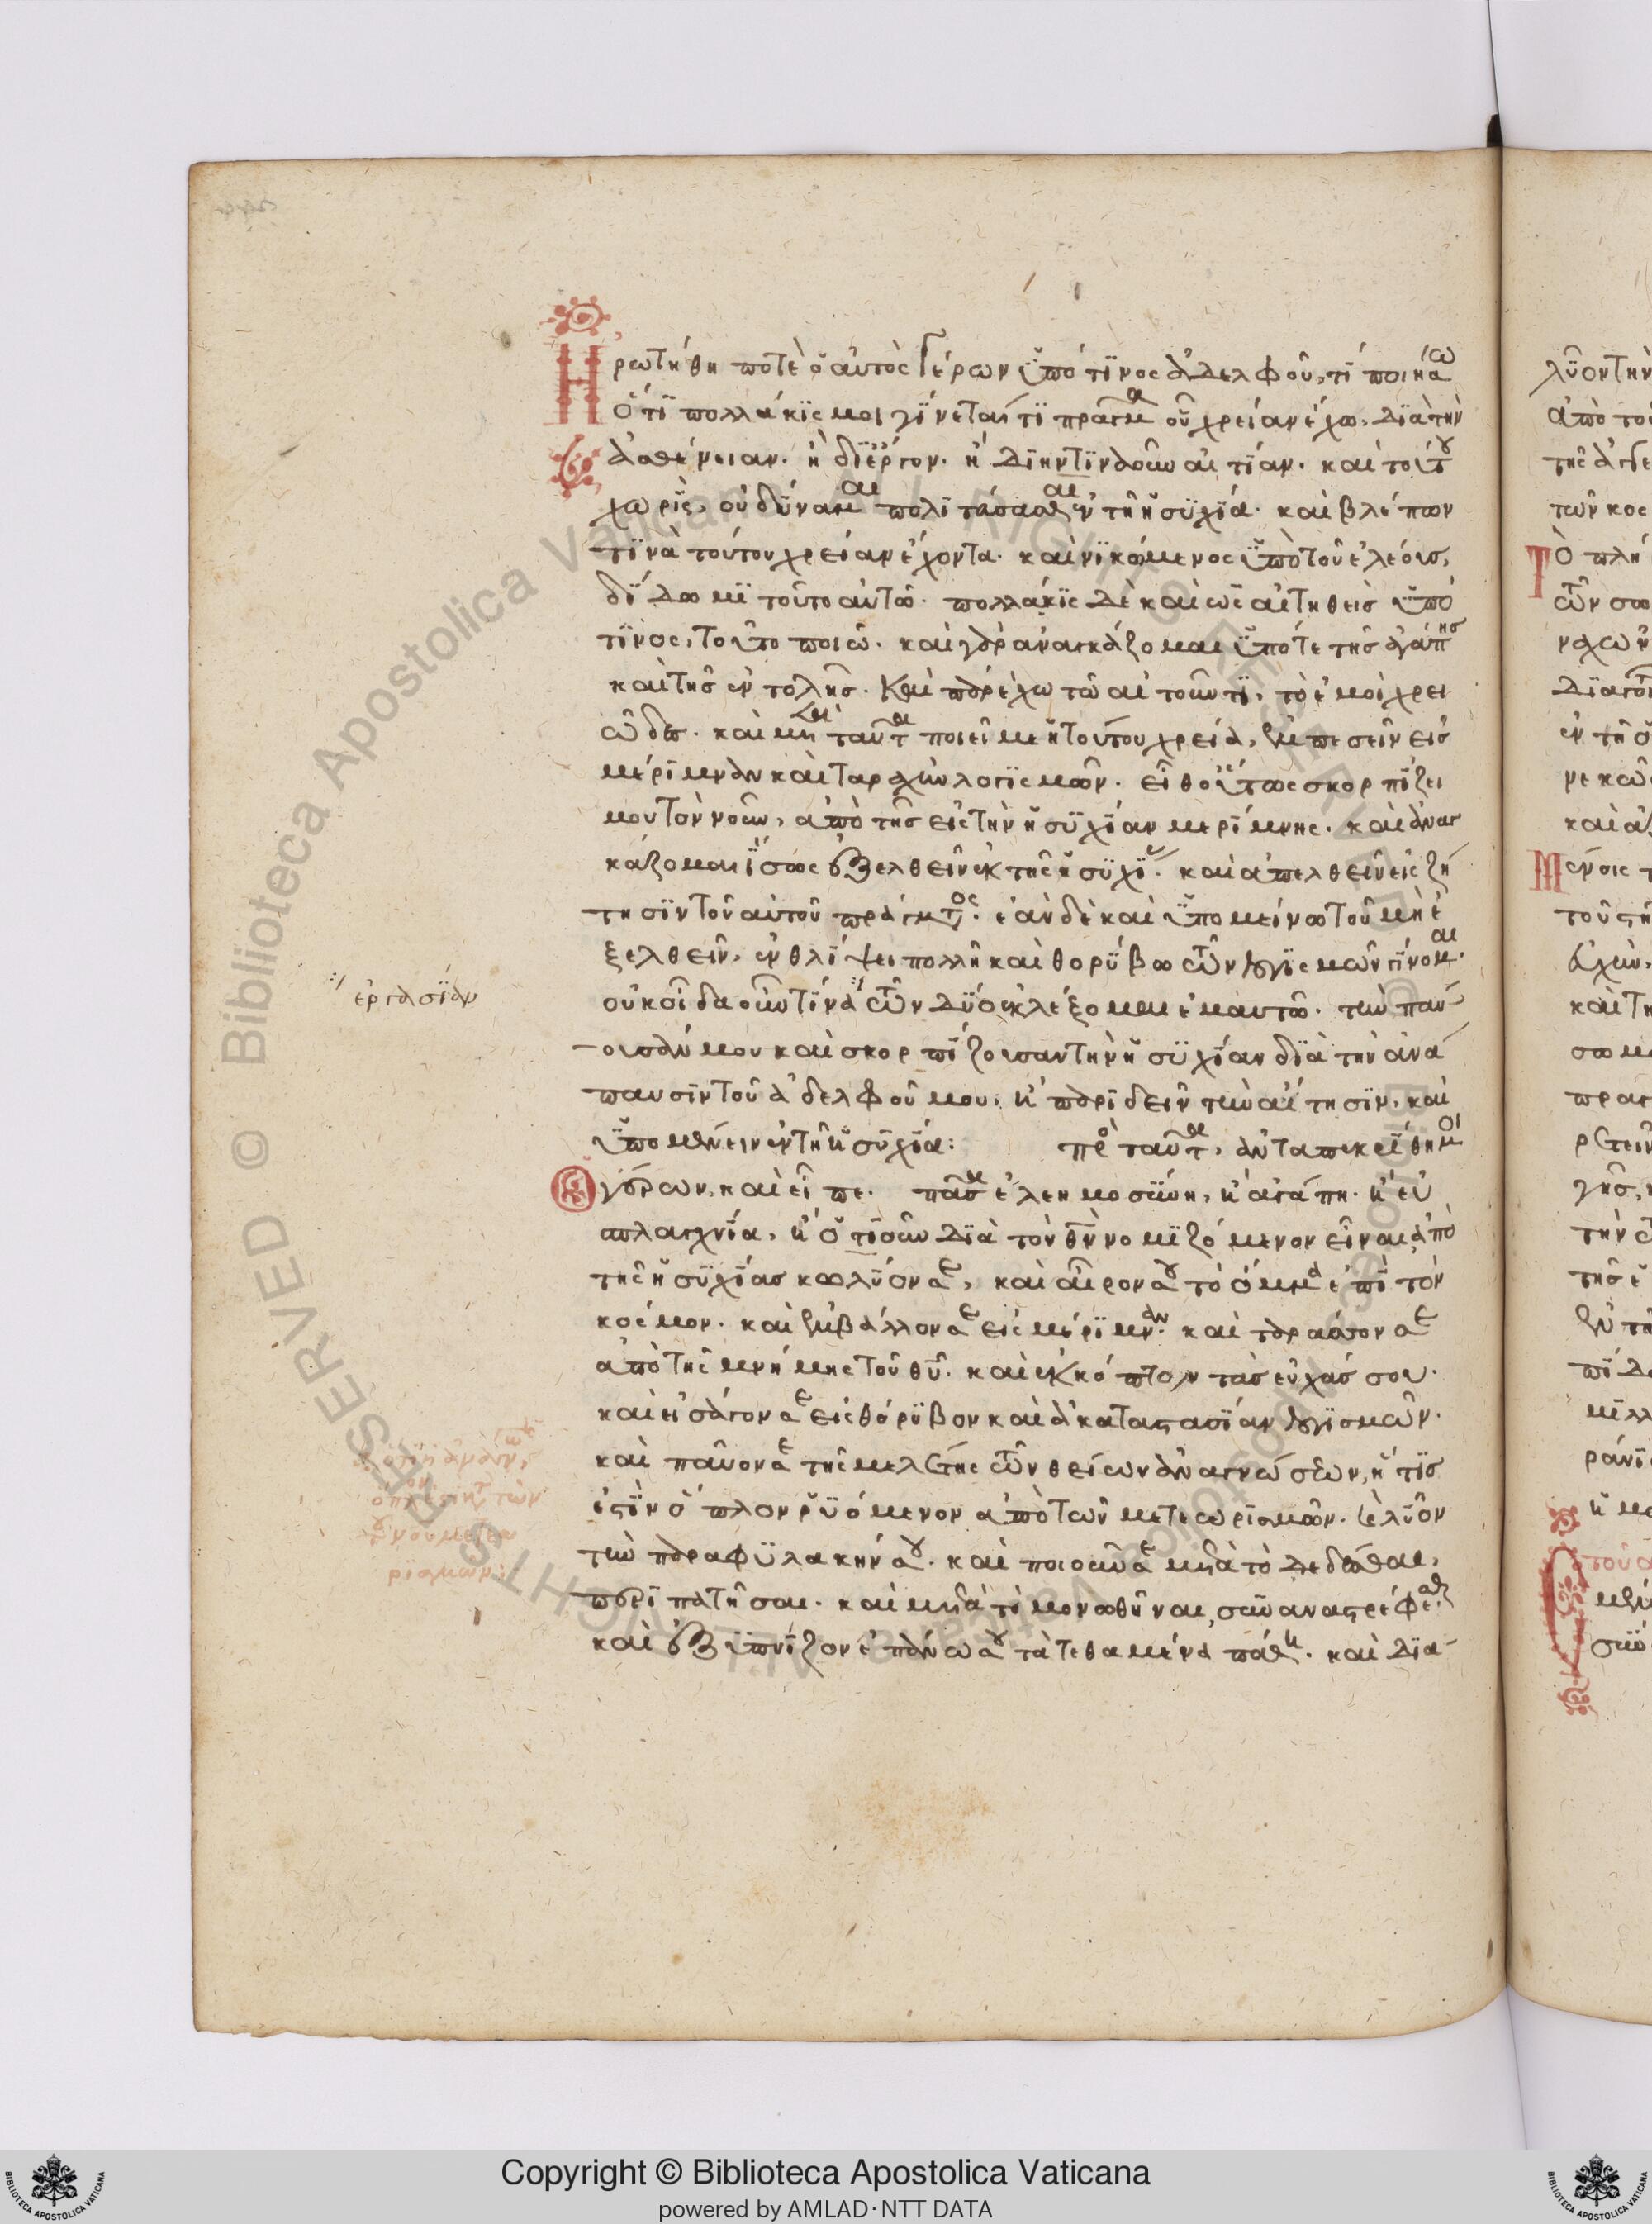 Ἠρωτήθη ποτὲ ὁ αὐτὸς Γέρων ὑπό τινος ἀδελφοῦ, τί ποιήσω
Ὅτι πολλάκις μοι γίνεται τι πρᾶγμα οὗ χρείαν ἔχω, διὰ τὴν
ἀσθένειαν. ἢ δι' ἔργον. ἢ δι' ἥντινα οὖν αἰτίαν. καὶ τούτου
χωρὶς, οὐ δύναμαι πολιτεύσασθαι ἐν τῇ ἡσυχίᾳ. καὶ βλέπων
τινὰ τούτου χρείαν ἔχοντα. καὶ νικώμενος ὑπὸ τοῦ ἐλέους,
δίδωμι τοῦτο αὐτῶ. πολλάκις δὲ καὶ ὡς αἰτηθεὶς ὑπό
τινος, τοῦτο ποιῶ. καὶ γὰρ ἀναγκάζομαι ὑπό τε τῆς ἀγάπης
καὶ τῆς ἐντολῆς. καὶ παρέχω τῶ αἰτοῦντι, τὸ ἐμοὶ χρει
ῶδες. καὶ μετὰ ταῦτα ποιεῖ με ἡ τούτου χρεία, ἐμπεσεῖν εἰς
μέριμναν καὶ ταραχὴν λογισμῶν. εἶθ' οὕτως σκορπίζει
μου τὸν νοῦν, ἀπὸ τῆς εἰς τὴν ἡσυχίαν μερίμνης. καὶ ἀναγ
κάζομαι ἴσως ἐξελθεῖν ἐκ τῆς ἡσυχίας. καὶ ἀπελθεῖν εἰς ζή
τησιν τοῦ αὐτοῦ πράγματος. ἐὰν δὲ καὶ ὑπομείνω τοῦ μὴ ἐ
ξελθεῖν, ἐν θλίψει πολλῇ καὶ θορύβω τῶν λογισμῶν γίνομαι.
οὐκ οἶδα οὖν τίνα τῶν δύο ἐκλέξομαι ἐμαυτῶ. τὴν παύ
ουσάν μου καὶ σκορπίζουσαν τὴν ἡσυχίαν διὰ τὴν ἀνά
παυσιν τοῦ ἀδελφοῦ μου, ἢ παριδεῖν τὴν αἴτησιν, καὶ
ὑπομένειν ἐν τῇ ἡσυχίᾳ: πρὸς ταῦτα, ἀνταπεκρίθη μοι
ὁ γέρων, καὶ εἶπε. πᾶσα ἐλεημοσύνη, ἢ ἀγάπη. ἢ εὐ
σπλαγχνία, ἢ ὅ τι οὖν διὰ τὸν θν νομιζόμενον εἶναι ἀπὸ
τῆς ἡσυχίας κωλῦόν σε, καὶ αἶρόν σου τὸ ὄμμα ἐπὶ τὸν
κόσμον. καὶ ἐμβάλλον σε εἰς μέριμναν. καὶ ταράσσον σε
ἀπὸ τῆς μνήμης τοῦ θυ. καὶ ἐκκόπτον τὰς εὐχάς σου.
καὶ εἰσάγον σε εἰς θόρυβον καὶ ἀκαταστασίαν λογισμῶν.
καὶ παῦον σε τῆς μελέτης τῶν θείων ἀναγνώσεων, ἥτις
ἐστὶν ὅπλον ῥυόμενον ἀπὸ τῶν μετεωρισμῶν. καὶ λῦον
τὴν παραφυλακήν σου. καὶ ποιοῦν σε μετὰ τὸ δεδέσθαι,
περιπατῆσαι. καὶ μετὰ τὸ μονωθῆναι, συναναστρέφεσθαι
καὶ ἐξυπνίζον ἐπάνω σου τὰ τεθαμμένα πάθη. καὶ δια
ἐργασίαν
Copyright © Biblioteca Apostolica Vaticana
powered by AMLAD·NTT DATA